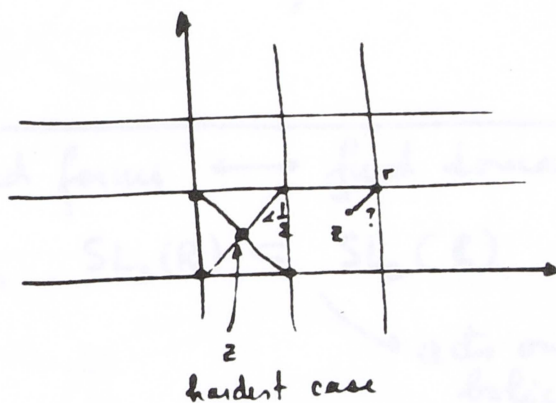 r
< 1/2
z ?
z
hardest case